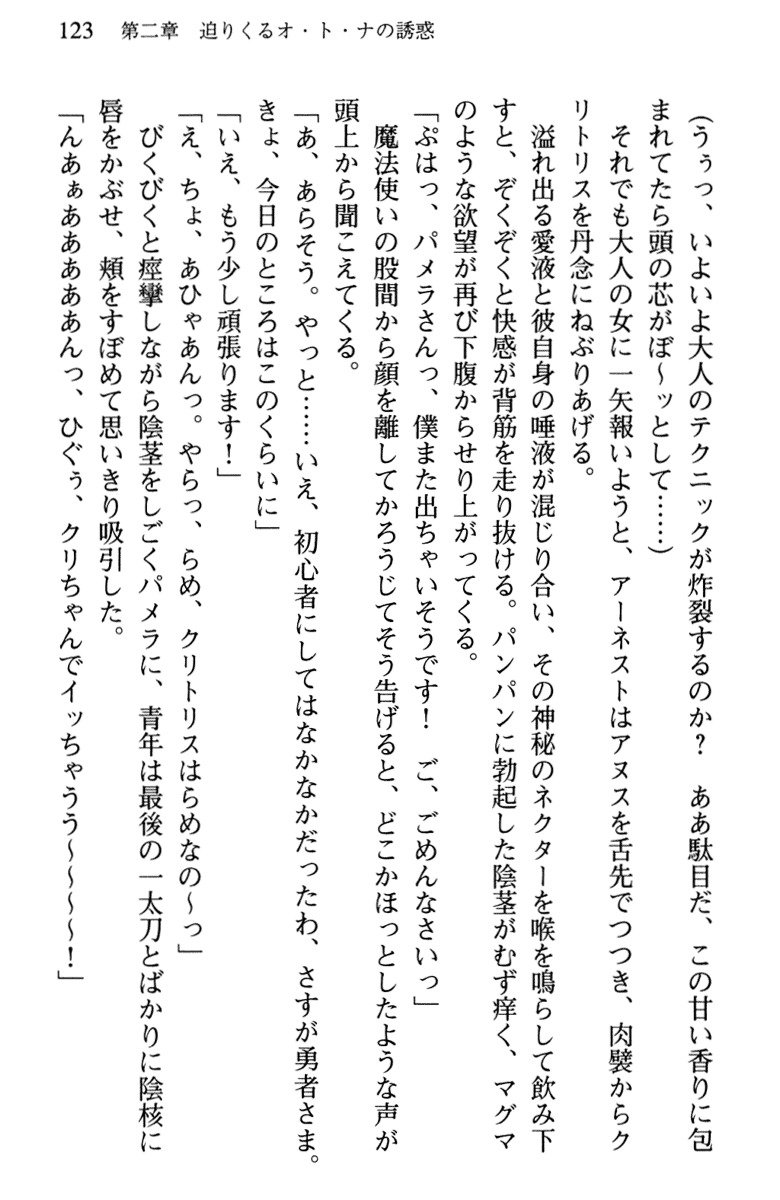 123　第二章　迫りくるオ・ト・ナの誘惑
(うぅっ、いよいよ大人のテクニックが炸裂するのか？　ああ駄目だ、この甘い香りに包
まれてたら頭の芯がぼ～ッとして……)
　それでも大人の女に一矢報いようと、アーネストはアヌスを舌先でつつき、肉襞からク
リトリスを丹念にねぶりあげる。
　溢れ出る愛液と彼自身の唾液が混じり合い、その神秘のネクターを喉を鳴らして飲み下
すと、ぞくぞくと快感が背筋を走り抜ける。パンパンに勃起した陰茎がむず痒く、マグマ
のような欲望が再び下腹からせり上がってくる。
「ぷはっ、パメラさんっ、僕また出ちゃいそうです！　ご、ごめんなさいっ」
　魔法使いの股間から顔を離してかろうじてそう告げると、どこかほっとしたような声が
頭上から聞こえてくる。
「あ、あらそう。やっと……いえ、初心者にしてはなかなかだったわ、さすが勇者さま。
きょ、今日のところはこのくらいに」
「いえ、もう少し頑張ります！」
「え、ちょ、あひゃあんっ。やらっ、らめ、クリトリスはらめなの～っ」
　びくびくと痙攣しながら陰茎をしごくパメラに、青年は最後の一太刀とばかりに陰核に
唇をかぶせ、頬をすぼめて思いきり吸引した。
「んあぁああああああんっ、ひぐぅ、クリちゃんでイッちゃうう～～～～！」